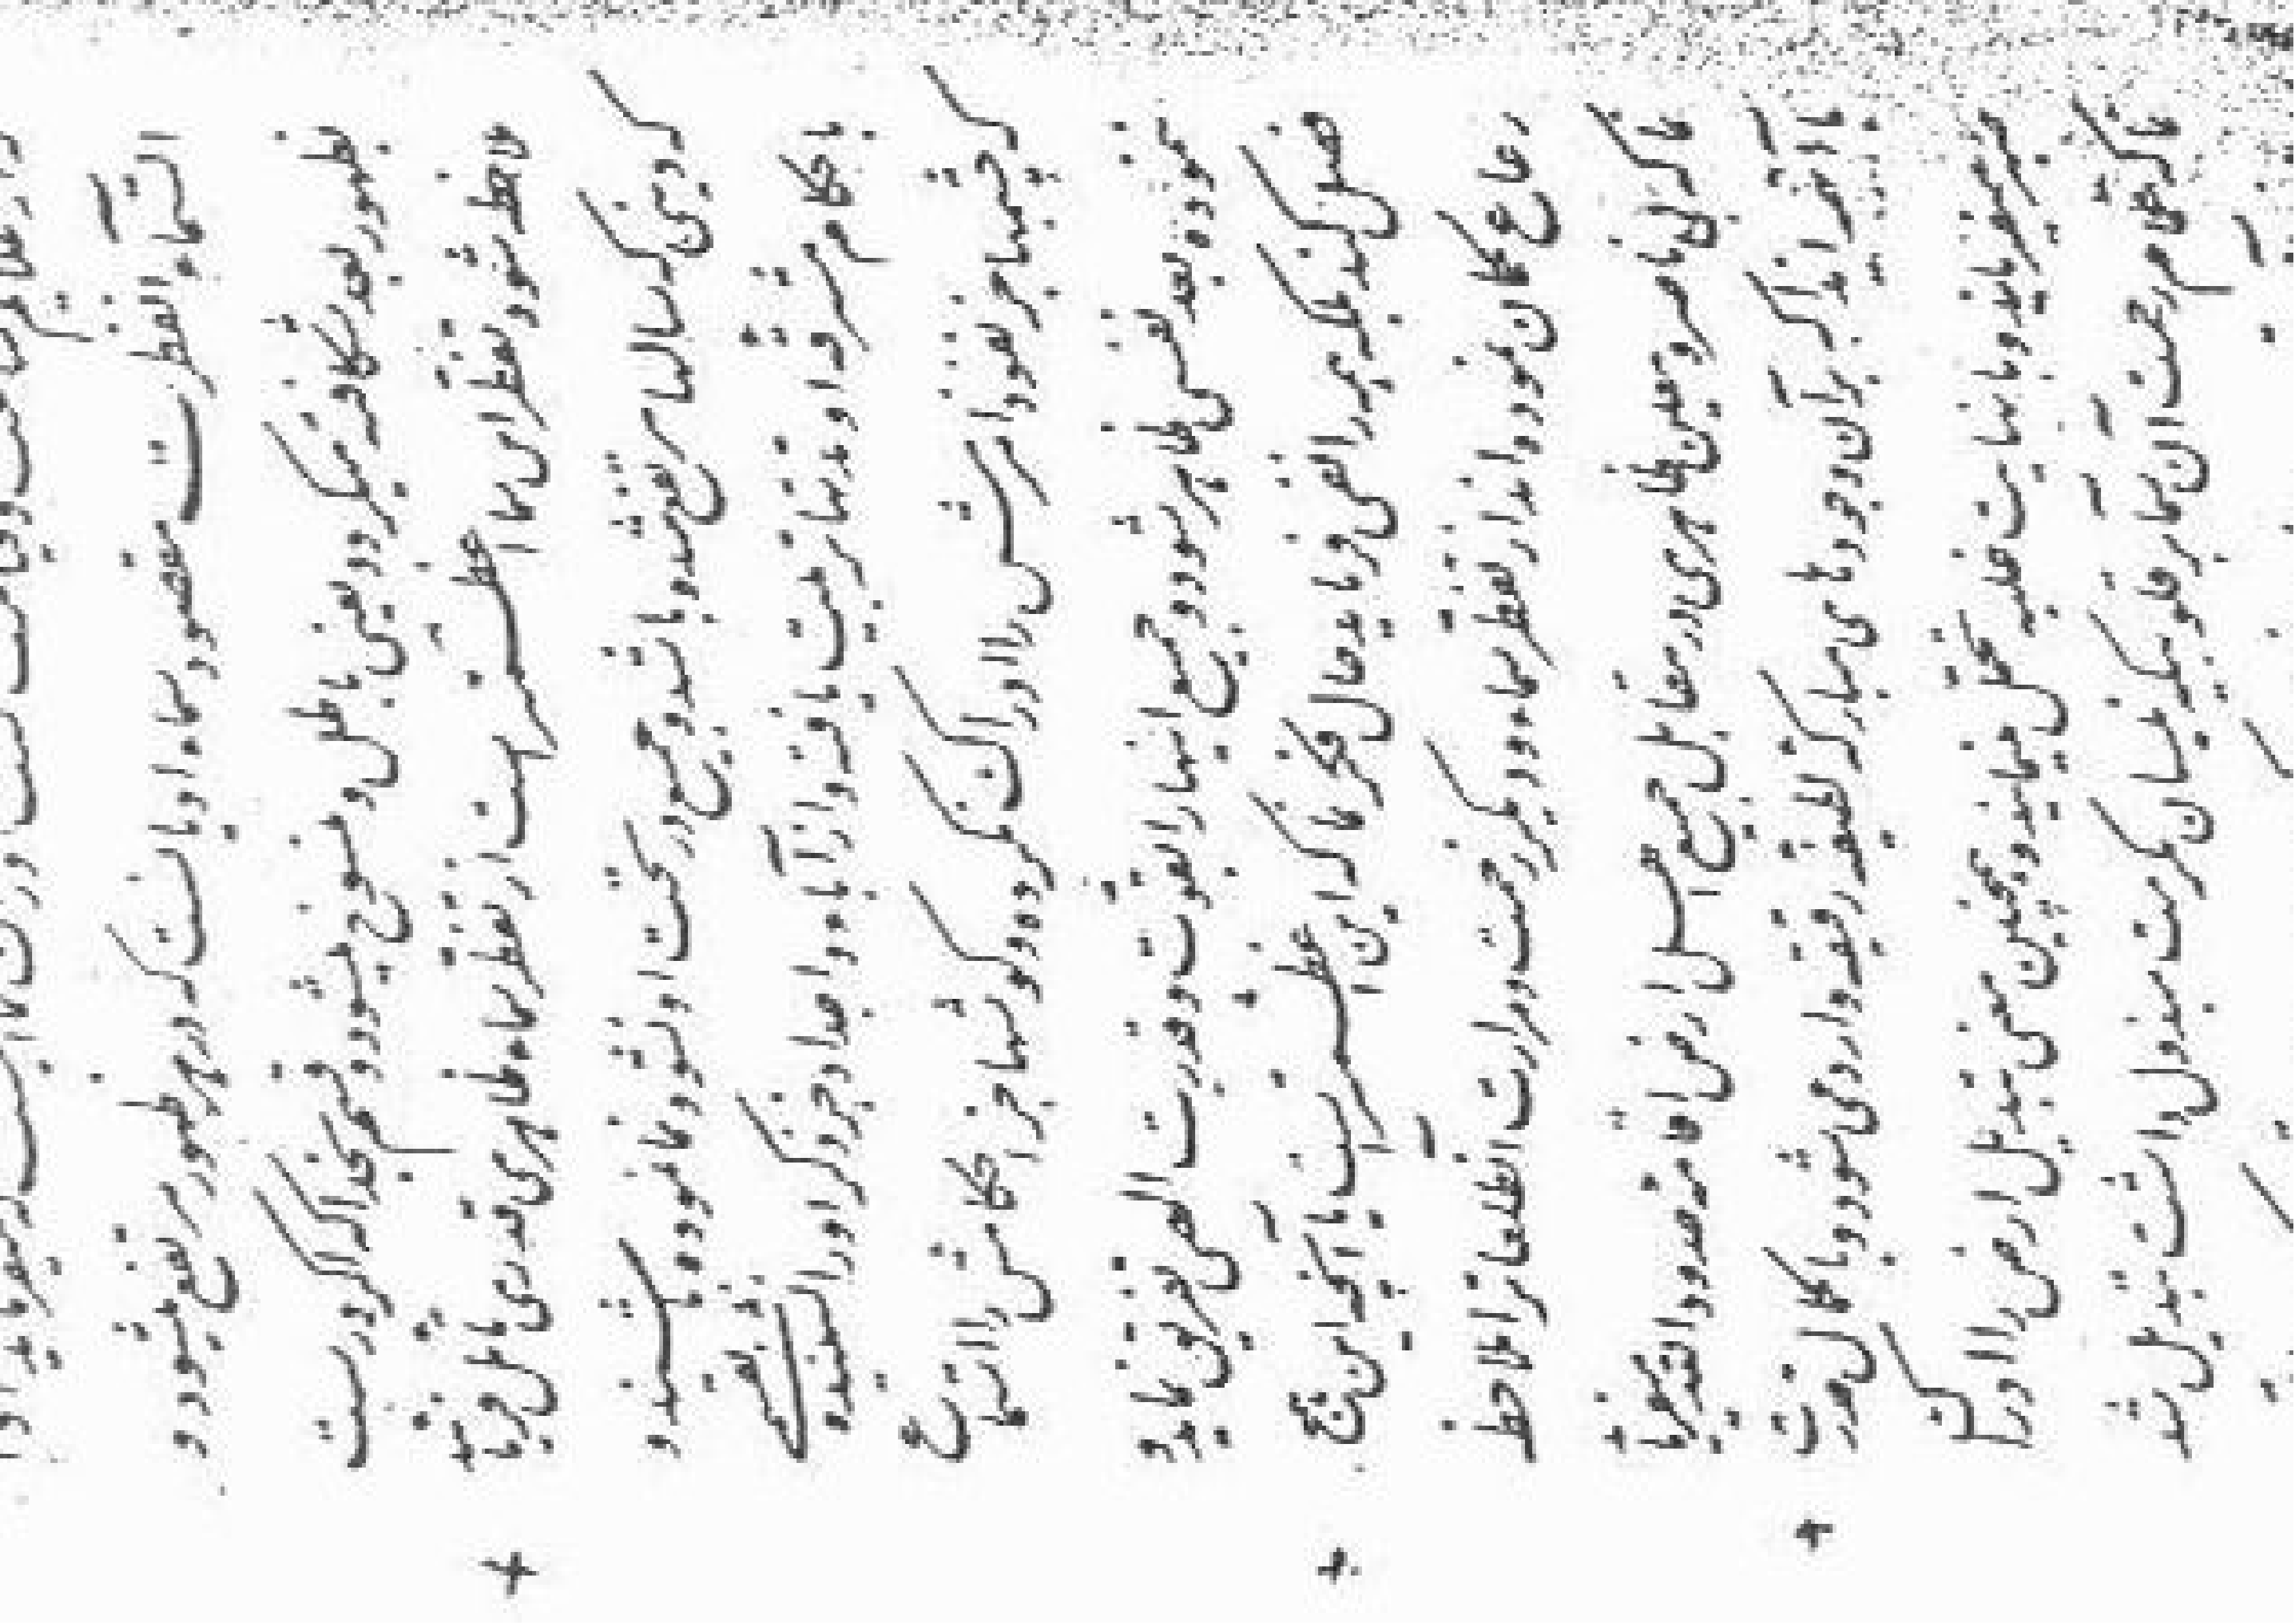 السّماء انفطرت مقصود سماء ادیانست که در هر ظهور مرتفع میشود و
بظهور بعد شکافته میگردد یعنی باطل و منسوخ میشود و قسم بخدا که اگر درست
ملاحظه شود تفطر این سما اعظمتر است از تفطر سماء ظاهری قدری تامل فرمائید
که دینی که سالها مرتفع شده باشد و جمیع در تحت او نشو و نما نموده باشند و
باحکام مشرقه او مدتها تربیت یافته و از آباء و اجداد جز ذکر او را نشنیده بقسمی
که چشمها جز نفوذ امرش را ادراک نکرده و گوشها جز احکامش را استماع
ننموده بعد نفسی ظاهر شود و جمیع اینها را بقوت و قدرت الهی تفریق نماید و
فصل کند بلکه همه را نفی فرماید حال فکر نما که این اعظمتر است یا آنچه این همج
رعاع گمان نموده اند از تفطر سماء و دیگر زحمت و مرارت ان طلعات را ملاحظه
نما که بی ناصر و معین ظاهری در مقابل جمیع اهل ارض اقامه حدود الله میفرمایند
با آنهمه ایذا که بر آن وجودهای مبارکه لطیفه رقیقه وارد می شود و با کمال قدرت
صبر میفرمایند و با نهایت غلبه تحمل مینمایند و همچنین معنی تبدیل ارض را ادراک
نما که غمام رحمت ان سماء بر قلوبیکه نیسان مکرمت مبذول داشت تبدیل شد